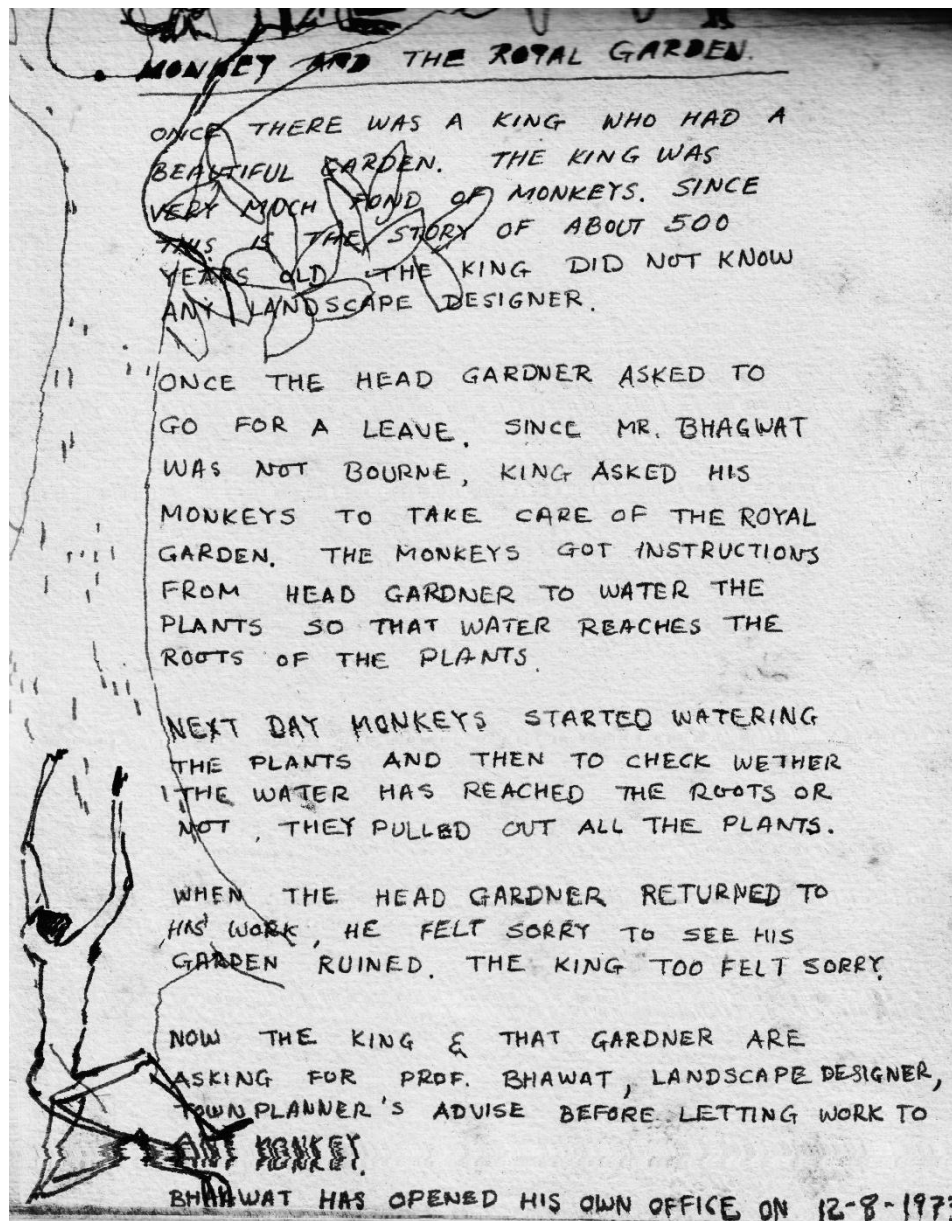 MONKEY AND THE ROYAL GARDEN.
ONCE THERE WAS A KING WHO HAD A
BEAUTIFUL GARDEN. THE KING WAS
VERY MUCH FOND OF MONKEYS. SINCE
THIS IS THE STORY OF ABOUT 500
YEARS OLD THE KING DID NOT KNOW
ANY LANDSCAPE DESIGNER.
ONCE THE HEAD GARDNER ASKED TO
GO FOR A LEAVE. SINCE MR. BHAGWAT
WAS NOT BOURNE, KING ASKED HIS
MONKEYS TO TAKE CARE OF THE ROYAL
GARDEN. THE MONKEYS GOT INSTRUCTIONS
FROM HEAD GARDNER TO WATER THE
PLANTS SO THAT WATER REACHES THE
ROOTS OF THE PLANTS.
NEXT DAY MONKEYS STARTED WATERING
THE PLANTS AND THEN TO CHECK WETHER
THE WATER HAS REACHED THE ROOTS OR
NOT, THEY PULLED OUT ALL THE PLANTS.
WHEN THE HEAD GARDNER RETURNED TO
HIS WORK, HE FELT SORRY TO SEE HIS
GARDEN RUINED. THE KING TOO FELT SORRY.
NOW THE KING & THAT GARDNER ARE
ASKING FOR PROF. BHAWAT, LANDSCAPE DESIGNER,
TOWN PLANNER'S ADVISE BEFORE LETTING WORK TO
ANY MONKEY.
BHAWAT HAS OPENED HIS OWN OFFICE ON 12-8-197